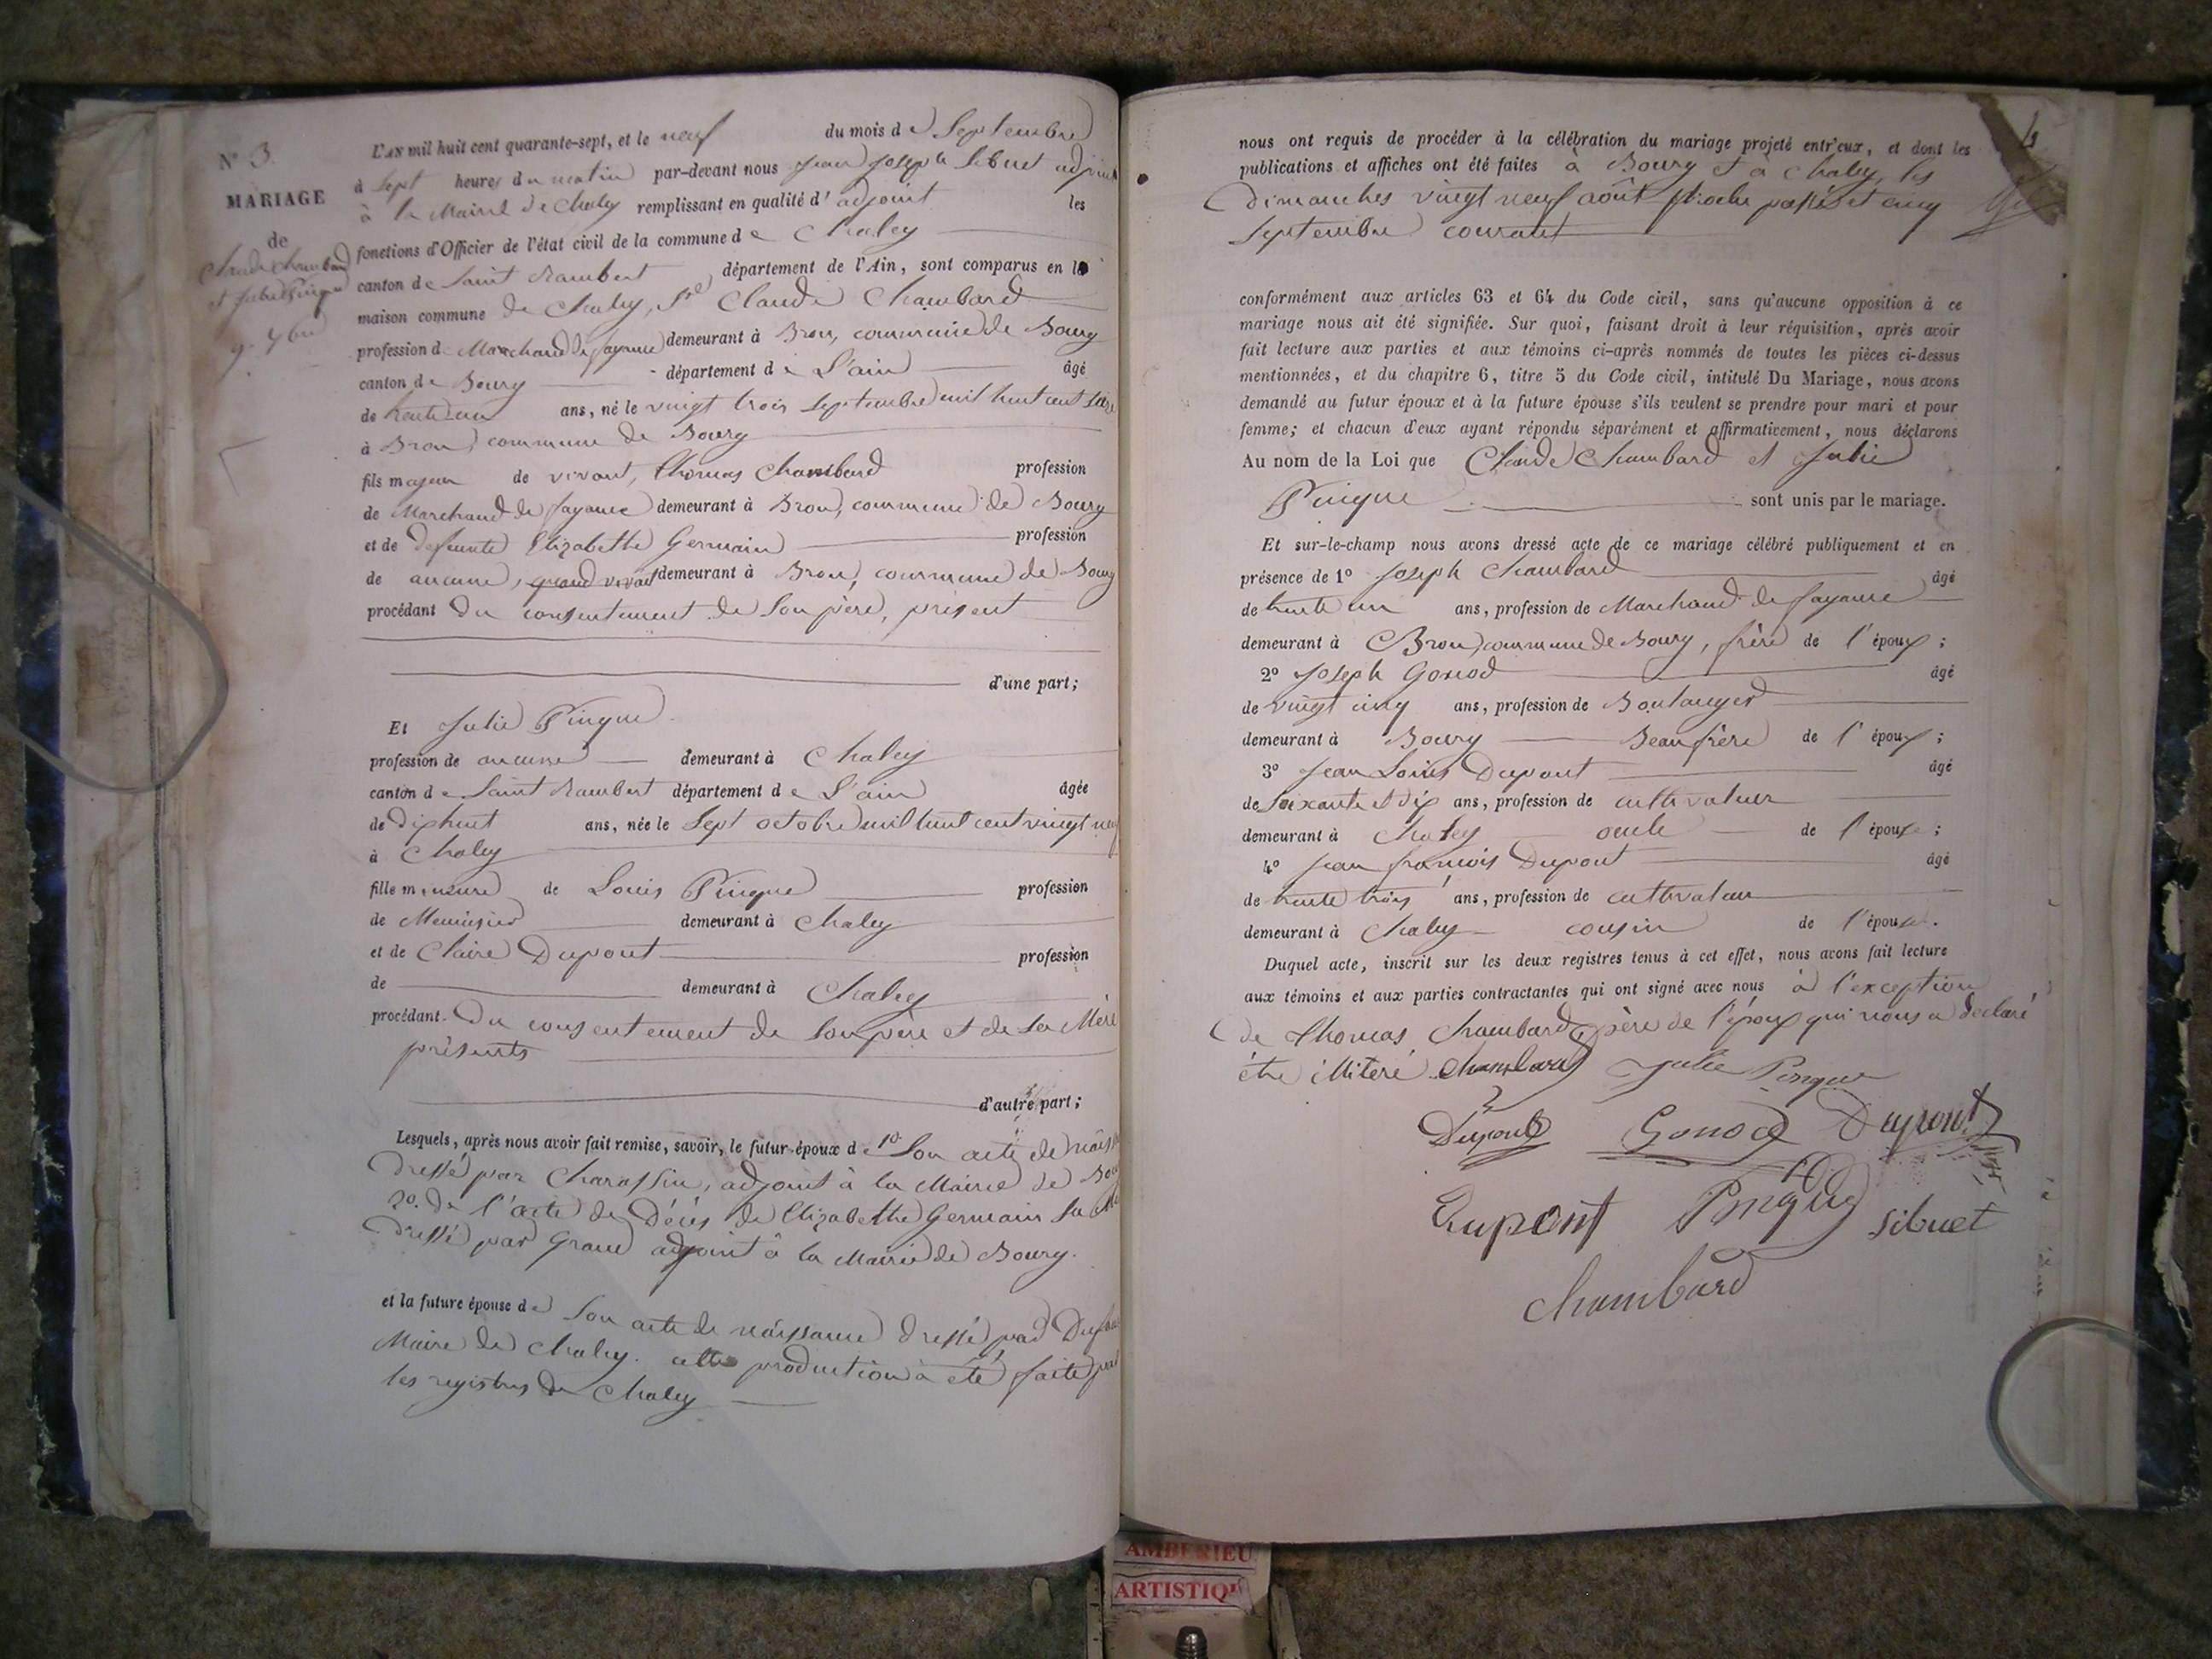 N° 3.
MARIAGE
de
Claude Chambard
et Julie Pingue
9. 7bre
L'AN mil huit cent quarante-sept, et le neuf du mois de Septembre
à Sept heures du matin par-devant nous Jean Joseph Sibuet adjoint
à la Mairie de Chaley remplissant en qualité d'adjoint les
fonctions d'Officier de l'état civil de la commune de Chaley
canton de Saint Rambert département de l'Ain, sont comparus en la
maison commune de Chaley, Sr Claude Chambard
profession de Marchand de fayance demeurant à Brou, commune de Bourg
canton de Bourg département de L'ain âgé
de trente un ans, né le vingt trois Septembre mil huit cent seize
à Brou commune de Bourg
fils majeur de vivant, Thomas Chambard profession
de Marchand de fayance demeurant à Brou, commune de Bourg
et de defeunte Elizabethe Germain profession
de aucune, quand vivait demeurant à Brou, commune de Bourg
procédant du consentement de Son père, présent
d'une part;
Et Julie Pingue
profession de aucune demeurant à Chaley
canton de Saint Rambert département de L'ain âgée
de dix huit ans, née le Sept octobre mil huit cent vingt neuf
à Chaley
fille mineure de Louis Pingue profession
de Menuisier demeurant à Chaley
et de Claire Dupont profession
de demeurant à Chaley
procédant Du consentement de Son père et de Sa Mère
présents
d'autre part;
Lesquels, après nous avoir fait remise, savoir, le futur époux de 1° Son acte de naiss
Dressé par Charassin, adjoint à la Mairie de Bou
2°. de l'acte de Décès de Elizabethe Germain Sa Me
Dressé par Grand adjoint à la Mairie de Bourg.
et la future épouse de Son acte de naissance dressé par
Maire de Chaley. cette production à été faite par
les registres de Chaley
nous ont requis de procéder à la célébration du mariage projeté entr'eux, et dont les
publications et affiches ont été faites à Bourg et à Chaley, les
Dimanches vingt neuf août proche passé et cinq
Septembre courant
conformément aux articles 63 et 64 du Code civil, sans qu'aucune opposition à ce
mariage nous ait été signifiée. Sur quoi, faisant droit à leur réquisition, après avoir
fait lecture aux parties et aux témoins ci-après nommés de toutes les pièces ci-dessus
mentionnées, et du chapitre 6, titre 5 du Code civil, intitulé Du Mariage, nous avons
demandé au futur époux et à la future épouse s'ils veulent se prendre pour mari et pour
femme; et chacun d'eux ayant répondu séparément et affirmativement, nous déclarons
Au nom de la Loi que Claude Chambard et Julie
Pingue sont unis par le mariage.
Et sur-le-champ nous avons dressé acte de ce mariage célébré publiquement et en
présence de 1° Joseph Chambard âgé
de trente un ans, profession de Marchand de fayance
demeurant à Brou, commune de Bourg, frère de l'époux;
2° Joseph Gonod âgé
de vingt cinq ans, profession de Boulanger
demeurant à Bourg Beaufrère de l'époux;
3° Jean Louis Dupont âgé
de Soixante et dix ans, profession de cultivateur
demeurant à Chaley oncle de l'épouse;
4° Jean françois Dupont âgé
de trente trois ans, profession de cultivateur
demeurant à Chaley cousin de l'épouse.
Duquel acte, inscrit sur les deux registres tenus à cet effet, nous avons fait lecture
aux témoins et aux parties contractantes qui ont signé avec nous à l'exception
de Thomas Chambard, père de l'époux qui nous a déclaré
être illitéré Chambard Julie Pingue
Dupont Gonod Dupont
Dupont Pingue Sibuet
Chambard
AMBERIEU
ARTISTIQU